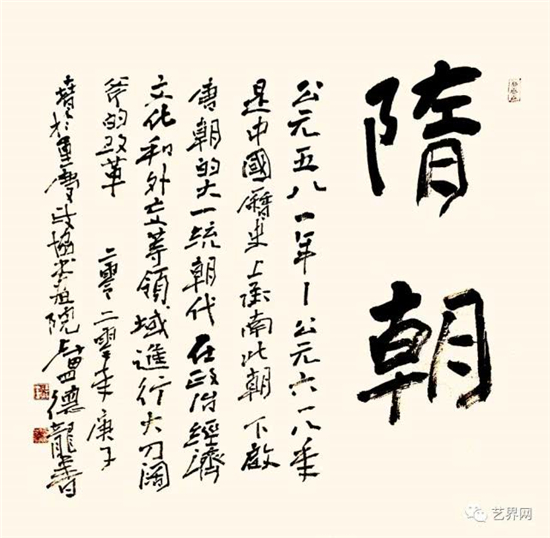 隋朝
公元五八一年—公元六一八年
是中國歷史上承南北朝 下啟
唐朝的大一統朝代 在政治經濟
文化和外交等領域進行大刀闊
斧的改革 二零二零年庚子
春於重慶政協書畫院 盧德龍書
艺界网